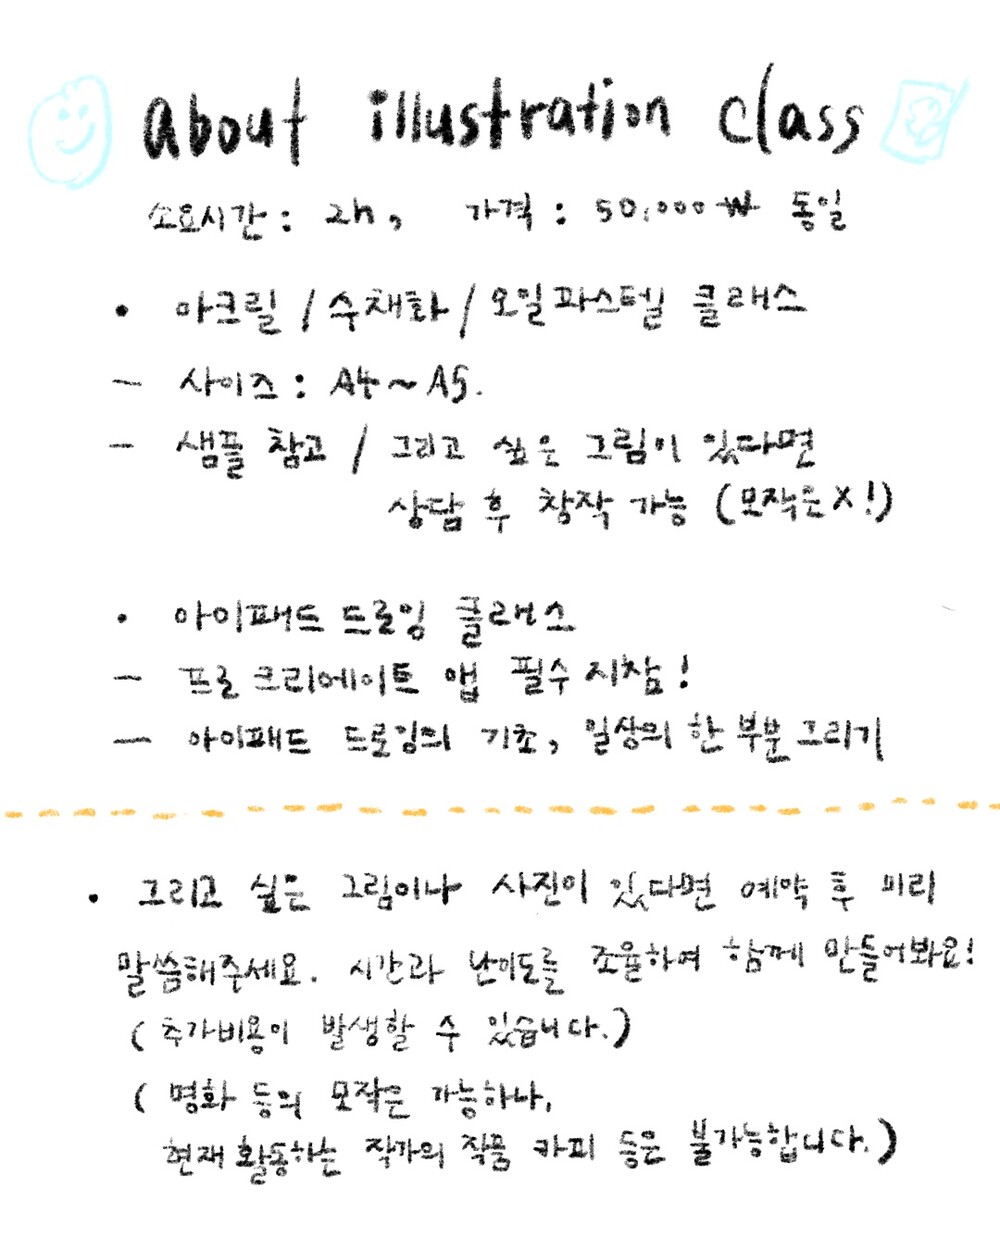 about illustration class
소요시간 : 2h, 가격 : 50,000₩ 동일
• 아크릴 / 수채화 / 오일파스텔 클래스
— 사이즈 : A4 ~ A5.
— 샘플 참고 / 그리고 싶은 그림이 있다면
상담 후 창작 가능 (모작은 X!)
• 아이패드 드로잉 클래스
— 프로크리에이트 앱 필수 지참!
— 아이패드 드로잉의 기초, 일상의 한 부분 그리기
• 그리고 싶은 그림이나 사진이 있다면 예약 후 미리
말씀해주세요. 시간과 난이도를 조율하여 함께 만들어봐요!
( 추가비용이 발생할 수 있습니다.)
( 명화 등의 모작은 가능하나,
현재 활동하는 작가의 작품 카피 등은 불가능합니다.)